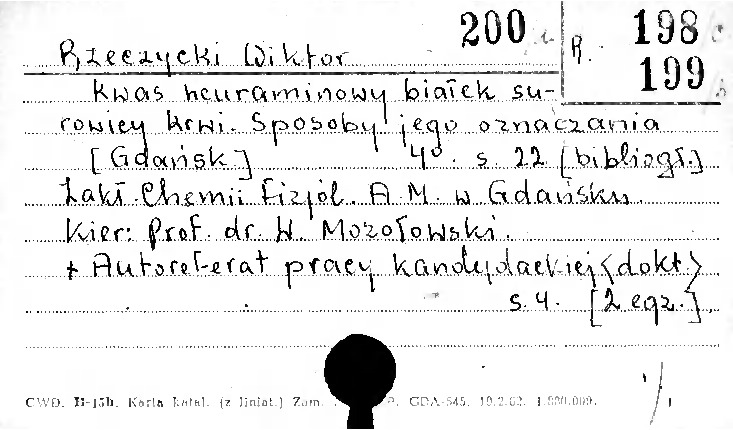 200
R. 198
199
Rzeczycki Wiktor
Kwas neuraminowy białek su-
rowicy krwi. Sposoby jego oznaczania
[Gdańsk] 4°. s. 22 [bibliogr.]
Zakł. Chemii Fizjol. A.M. w Gdańsku.
Kier: Prof. dr. W. Mozołowski.
+ Autoreferat pracy kandydackiej <dokt.>
s. 4. [2 egz.]
CWD. II-15b. Karta katal. (z liniat.) Zam. P. GDA-545.